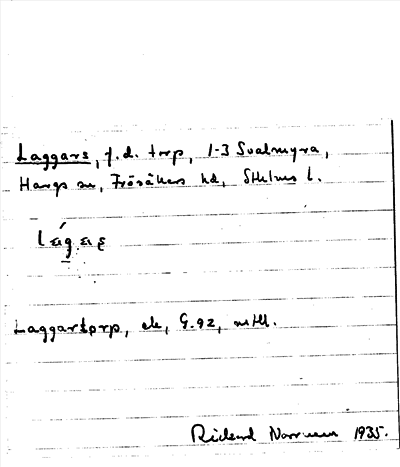 Laggars, f.d. torp, 1-3 Svalmyra,
Hargs sn, Frösåkers hd, Sthlms l.
Laggartorp, ek, G. 92, mtll.
Rickard Norrman 1935.